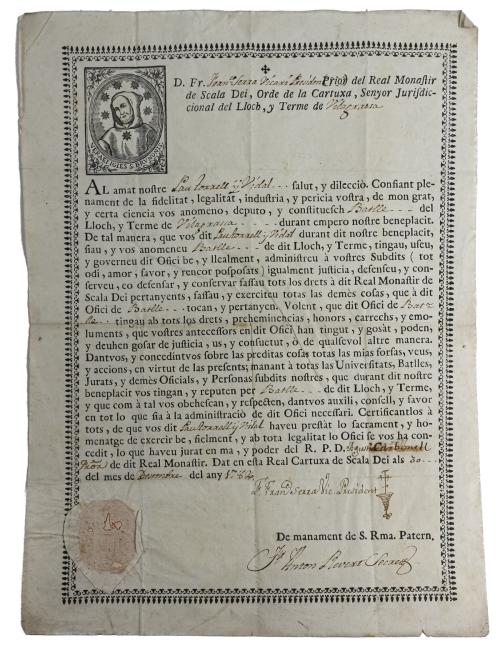 D. Fr. Fran Serra Vicari President Prior del Real Monastir
de Scala Dei, Orde de la Cartuxa, Senyor Jurisdic-
cional del Lloch, y Terme de Vilagrasa
S. BRUNONIS
AL amat nostre Pau Torrell y Vidal salut, y dilecciò. Confiant ple-
nament de la fidelitat, legalitat, industria, y pericia vostra, de mon grat,
y certa ciencia vos anomeno, deputo, y constituesch Batlle del
Lloch, y Terme de Vilagrasa durant empero nostre beneplacit.
De tal manera, que vos dit Pau Torrell y Vidal durant dit nostre beneplacit,
siau, y vos anomeneu Batlle de dit Lloch, y Terme, tingau, useu,
y governeu dit Ofici be, y llealment, administreu à vostres Subdits ( tot
odi, amor, favor, y rencor posposats ) igualment justicia, defenseu, y con-
serveu, eo defensar, y conservar fassau tots los drets à dit Real Monastir de
Scala Dei pertanyents, fassau, y exerciteu totas las demès cosas, que à dit
Ofici de Batlle tocan, y pertanyen. Volent, que dit Ofici de Batl-
le tingau ab tots los drets, preheminencias, honors, carrechs, y emo-
luments, que vostres antecessors en dit Ofici han tingut, y gosàt, poden,
y deuhen gosar de justicia, us, y consuetut, ò de qualsevol altre manera.
Dantvos, y concedintvos sobre las preditas cosas totas las mias forsas, veus,
y accions, en virtut de las presents; manant à totas las Universitats, Batlles,
Jurats, y demès Oficials, y Personas subdits nostres, que durant dit nostre
beneplacit vos tingan, y reputen per Batlle de dit Lloch, y Terme,
y que com à tal vos obehescan, y respecten, dantvos auxili, consell, y favor
en tot lo que sia à la administraciò de dit Ofici necessari. Certificantlos à
tots, de que vos dit Pau Torrell y Vidal haveu prestàt lo sacrament, y ho-
menatge de exercir be, fielment, y ab tota legalitat lo Ofici se vos ha con-
cedit, lo que haveu jurat en ma, y poder del R. P. D. Agusti Carbonell
Prior de dit Real Monastir. Dat en esta Real Cartuxa de Scala Dei als 30
del mes de Desembre del any
F. Fran Serra Vic. President
De manament de S. Rma. Patern.
Fr. Anton Rovera Secret